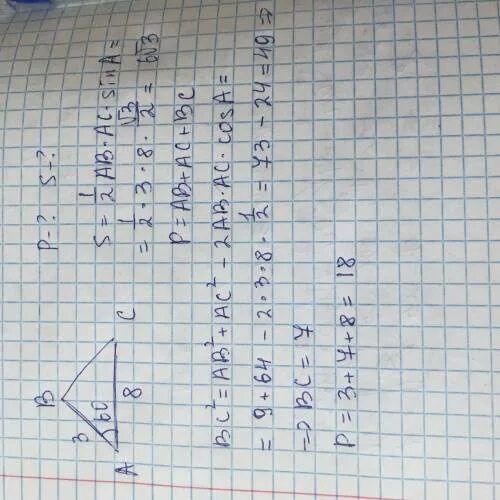 P-? S-?
B
3
60
A
8
C
S = 1/2 AB · AC · sin A =
= 1/2 · 3 · 8 · √3/2 = 6√3
P = AB + AC + BC
BC² = AB² + AC² - 2AB · AC · cos A =
= 9 + 64 - 2 · 3 · 8 · 1/2 = 73 - 24 = 49 ⇒
⇒ BC = 7
P = 3 + 7 + 8 = 18